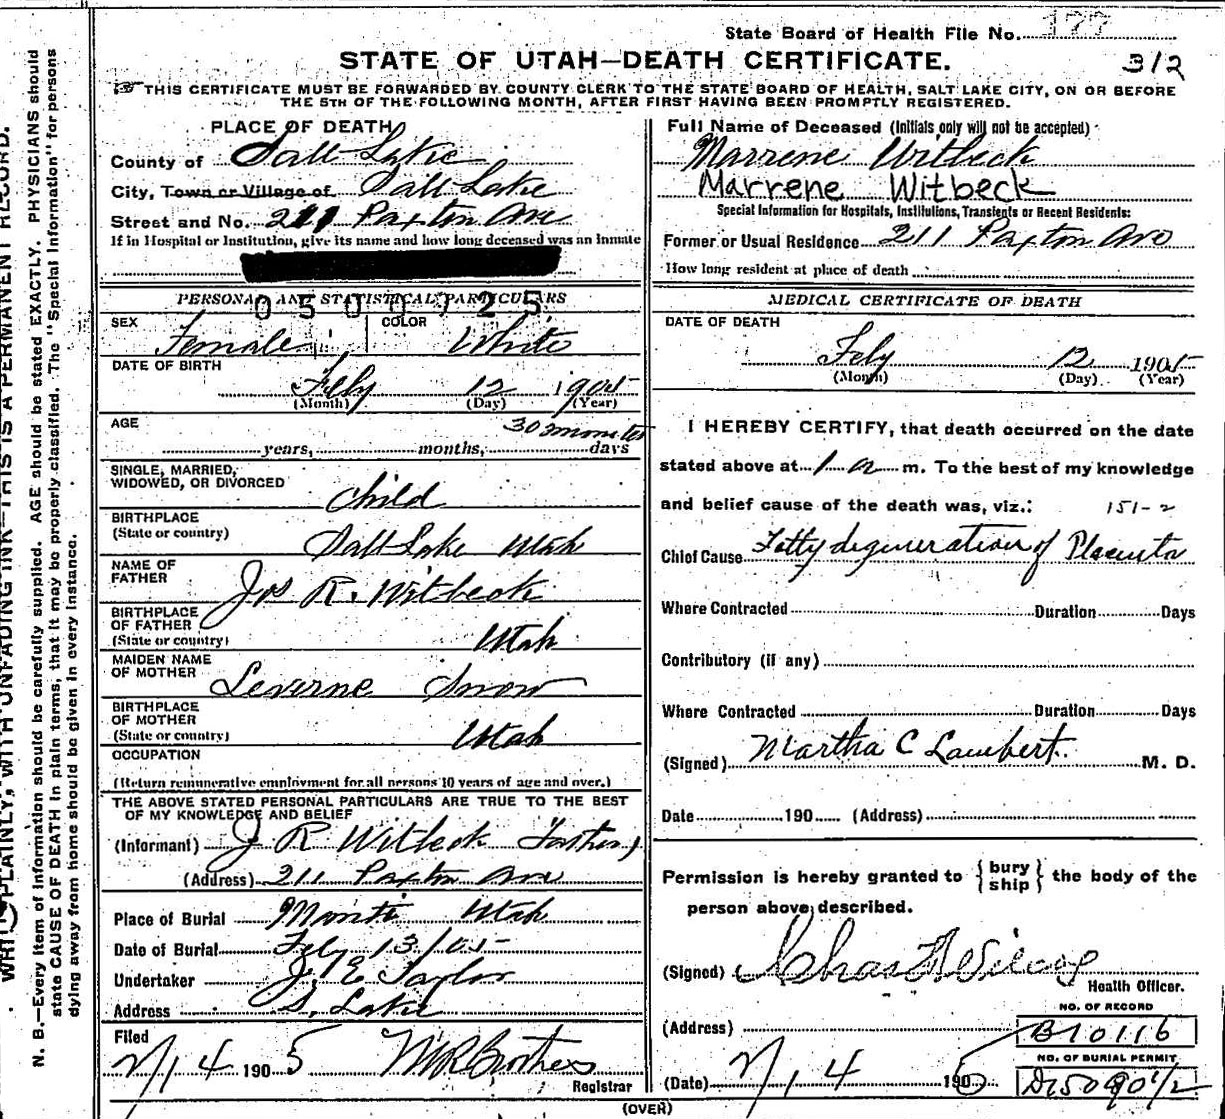 State Board of Health File No. 177
STATE OF UTAH—DEATH CERTIFICATE.
312
THIS CERTIFICATE MUST BE FORWARDED BY COUNTY CLERK TO THE STATE BOARD OF HEALTH, SALT LAKE CITY, ON OR BEFORE
THE 5TH OF THE FOLLOWING MONTH, AFTER FIRST HAVING BEEN PROMPTLY REGISTERED.
PLAINLY, WITH UNFADING INK—THIS IS A PERMANENT RECORD.
N. B.—Every item of information should be carefully supplied. AGE should be stated EXACTLY. PHYSICIANS should
state CAUSE OF DEATH in plain terms, that it may be properly classified. The "Special Information" for persons
dying away from home should be given in every instance.
PLACE OF DEATH
County of Salt Lake
City, Town or Village of Salt Lake
Street and No. 211 Paxton Ave
If in Hospital or Institution, give its name and how long deceased was an inmate
PERSONAL AND STATISTICAL PARTICULARS
0500725
SEX Female COLOR White
DATE OF BIRTH
Feby 12 1905
(Month) (Day) (Year)
AGE 30 minutes
years, months, days
SINGLE, MARRIED,
WIDOWED, OR DIVORCED Child
BIRTHPLACE
(State or country) Salt Lake Utah
NAME OF
FATHER Jos R. Witbeck
BIRTHPLACE
OF FATHER
(State or country) Utah
MAIDEN NAME
OF MOTHER Leverne Snow
BIRTHPLACE
OF MOTHER
(State or country) Utah
OCCUPATION
(Return remunerative employment for all persons 10 years of age and over.)
THE ABOVE STATED PERSONAL PARTICULARS ARE TRUE TO THE BEST
OF MY KNOWLEDGE AND BELIEF
(Informant) J R Witbeck Father)
(Address) 211 Paxton Ave
Place of Burial Manti Utah
Date of Burial Feby 13/05
Undertaker J. E Taylor
Address S. Lake
Filed
2/14 1905 Brothers
Registrar
Full Name of Deceased (Initials only will not be accepted)
Marrene Witbeck
Marrene Witbeck
Special Information for Hospitals, Institutions, Transients or Recent Residents:
Former or Usual Residence 211 Paxton Ave
How long resident at place of death
MEDICAL CERTIFICATE OF DEATH
DATE OF DEATH
Feby 12 1905
(Month) (Day) (Year)
I HEREBY CERTIFY, that death occurred on the date
stated above at 1 a m. To the best of my knowledge
and belief cause of the death was, viz.: 151-2
Chief Cause Fatty degeneration of Placenta
Where Contracted Duration Days
Contributory (if any)
Where Contracted Duration Days
(Signed) Martha C Lambert M. D.
Date 190 (Address)
Permission is hereby granted to {bury
ship} the body of the
person above described.
(Signed) Chas F Wilcox
Health Officer.
NO. OF RECORD
(Address) B10116
NO. OF BURIAL PERMIT
(Date) 2/14 1905
(OVER)